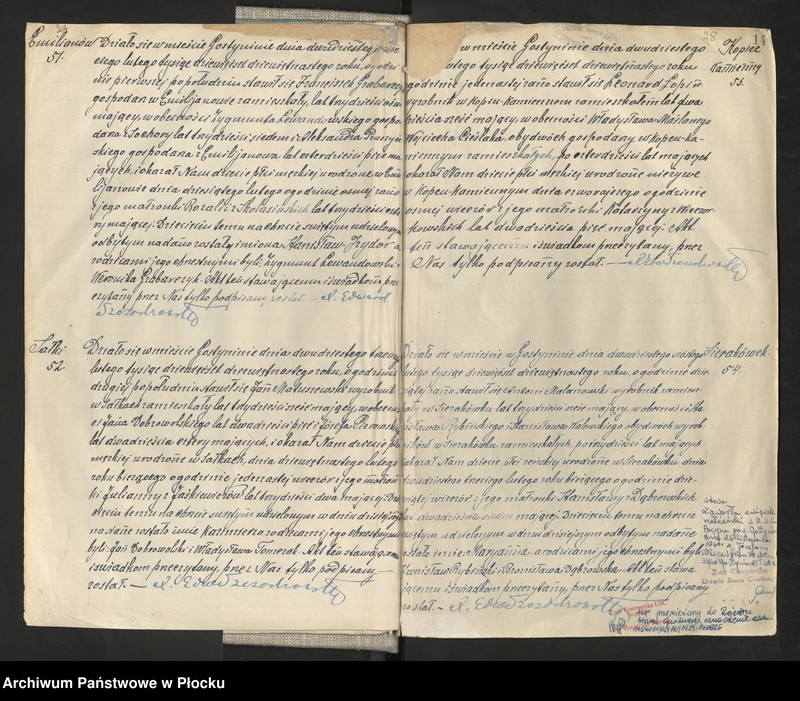 Emilianów
51.
Działo się w mieście Gostyninie dnia dwudziestego
lutego tysiąc dziewięćset dziewiętnastego roku, o godzi
nie pierwszej po południu stawił się Franciszek Grabarczyk
gospodarz w Emiljanowie zamieszkały, lat trzydzieści
mający, w obecności Zygmunta Lewandowskiego gospo
darza z Sochory lat trzydzieści siedem i Aleksandra
skiego gospodarza z Emiljanowa lat czterdzieści pięć ma
jących, i okazał Nam dziecię płci męskiej urodzone w Emi
ljanowie dnia dziesiątego lutego o godzinie ósmej rano
z jego małżonki Rozalii z lat trzydzieści czte
ry mającej. Dziecięciu temu na chrzcie świętym udzielonym
odbytym nadane zostały imiona Stanisław-Izydor a
rodzicami jego chrzestnymi byli: Zygmunt Lewandowski i
Weronika Grabarczyk. Akt ten stawającemu i świadkom prze
czytany przez Nas tylko podpisany został. — X. Edward
Szczodrowski
Sałki
52.
Działo się w mieście Gostyninie dnia dwudziestego trzeciego
lutego tysiąc dziewięćset dziewiętnastego roku, o godzinie
drugiej po południu stawił się Jan Matuszewski wyrobnik
w Sałkach zamieszkały lat trzydzieści sześć mający, w obecno
ści Jana Dobrowolskiego lat dwadzieścia pięć i Józefa
lat dwadzieścia cztery mających, i okazał Nam dziecię płci
męskiej urodzone w Sałkach, dnia dziewiętnastego lutego
roku bieżącego o godzinie jedenastej wieczór z jego małżon
ki Julianny z Jaśkiewiczów lat trzydzieści dwa mającej. Dzie
cięciu temu na chrzcie świętym udzielonym w dniu dzisiejszym
nadane zostało imię Kazimierz a rodzicami jego chrzestnymi
byli: Jan Dobrowolski i Władysława Tomczak. Akt ten stawającemu
i świadkom przeczytany, przez Nas tylko podpisany
został. — X. Edw. Szczodrowski
28
14
Kopiec
Kamienny
53.
w mieście Gostyninie dnia dwudziestego
lutego tysiąc dziewięćset dziewiętnastego roku
o godzinie jedenastej rano stawił się Leonard
wyrobnik w Kopcu-Kamiennym zamieszkały lat dwa
dzieścia sześć mający, w obecności Władysława Maślanego
Wojciecha Cieślaka, obydwóch gospodarzy w Kopcu-Ka
miennym zamieszkałych, po czterdzieści lat mających
okazał Nam dziecię płci męskiej urodzone nieżywe
w Kopcu-Kamiennym dnia czworajszego o godzinie
ósmej wieczór z jego małżonki Katarzyny z
kowskich lat dwadzieścia pięć mającej. Akt
ten stawającemu i świadkom przeczytany, przez
Nas tylko podpisany został. — X. Edw. Szczodrowski
Sierakówek
54.
Działo się w mieście w Gostyninie dnia dwudziestego szóstego
lutego tysiąc dziewięćset dziewiętnastego roku, o godzinie dzie
wiątej rano stawił się Antoni Malanowski wyrobnik zamiesz
kały w Sierakówku lat trzydzieści sześć mający, w obecności Sta
nisława Rybińskiego i Stanisława obydwóch wyrob
ników w Sierakówku zamieszkałych, po trzydzieści lat mających
i okazał Nam dziecię płci żeńskiej urodzone w Sierakówku dnia
dwudziestego trzeciego lutego roku bieżącego o godzinie dzie
wiątej wieczór z jego małżonki Stanisławy z Dąbrowskich
lat dwadzieścia siedm mającej. Dziecięciu temu na chrzcie
świętym udzielonym w dniu dzisiejszym odbytym nadane
zostało imię: Maryanna, a rodzicami jego chrzestnymi byli
Stanisław Rybiński i Bronisława Dąbrowska. Akt ten stawa
jącemu i świadkom przeczytany, przez Nas tylko podpisany
został. — X. Edw. Szczodrowski
zawarła związek
małżeński
Archiwum Państwowe w Płocku